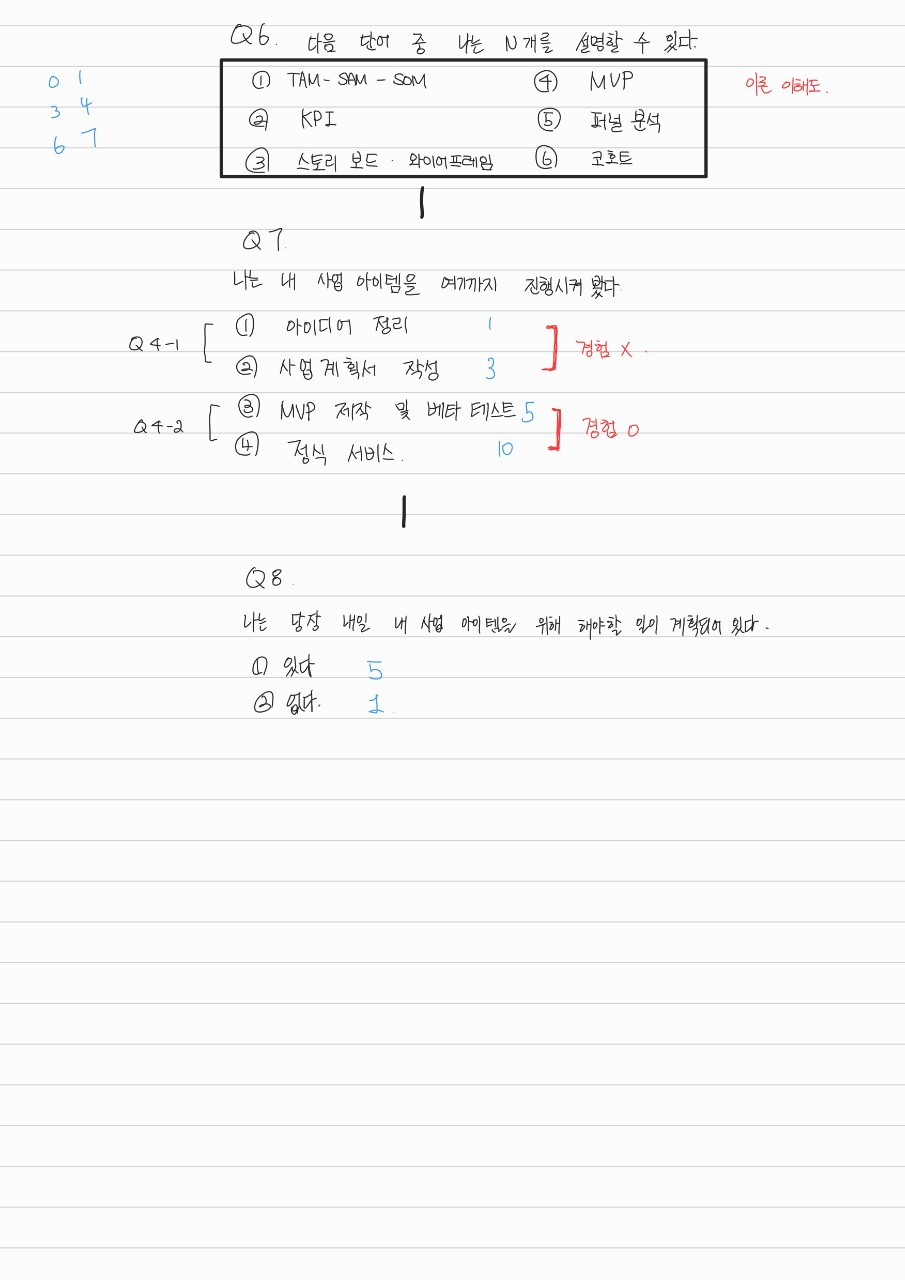 Q6. 다음 단어 중 나는 N개를 설명할 수 있다.
0 1
3 4
6 7
① TAM-SAM-SOM ④ MVP 이론 이해도.
② KPI ⑤ 퍼널 분석
③ 스토리 보드 · 와이어프레임 ⑥ 코호트
Q7.
나는 내 사업 아이템을 여기까지 진행시켜 봤다
Q4-1
① 아이디어 정리 1
② 사업계획서 작성 3
경험 X.
Q4-2
③ MVP 제작 및 베타 테스트 5
④ 정식 서비스. 10
경험 O
Q8.
나는 당장 내일 내 사업 아이템을 위해 해야할 일이 계획되어 있다.
① 있다 5
② 없다. 1